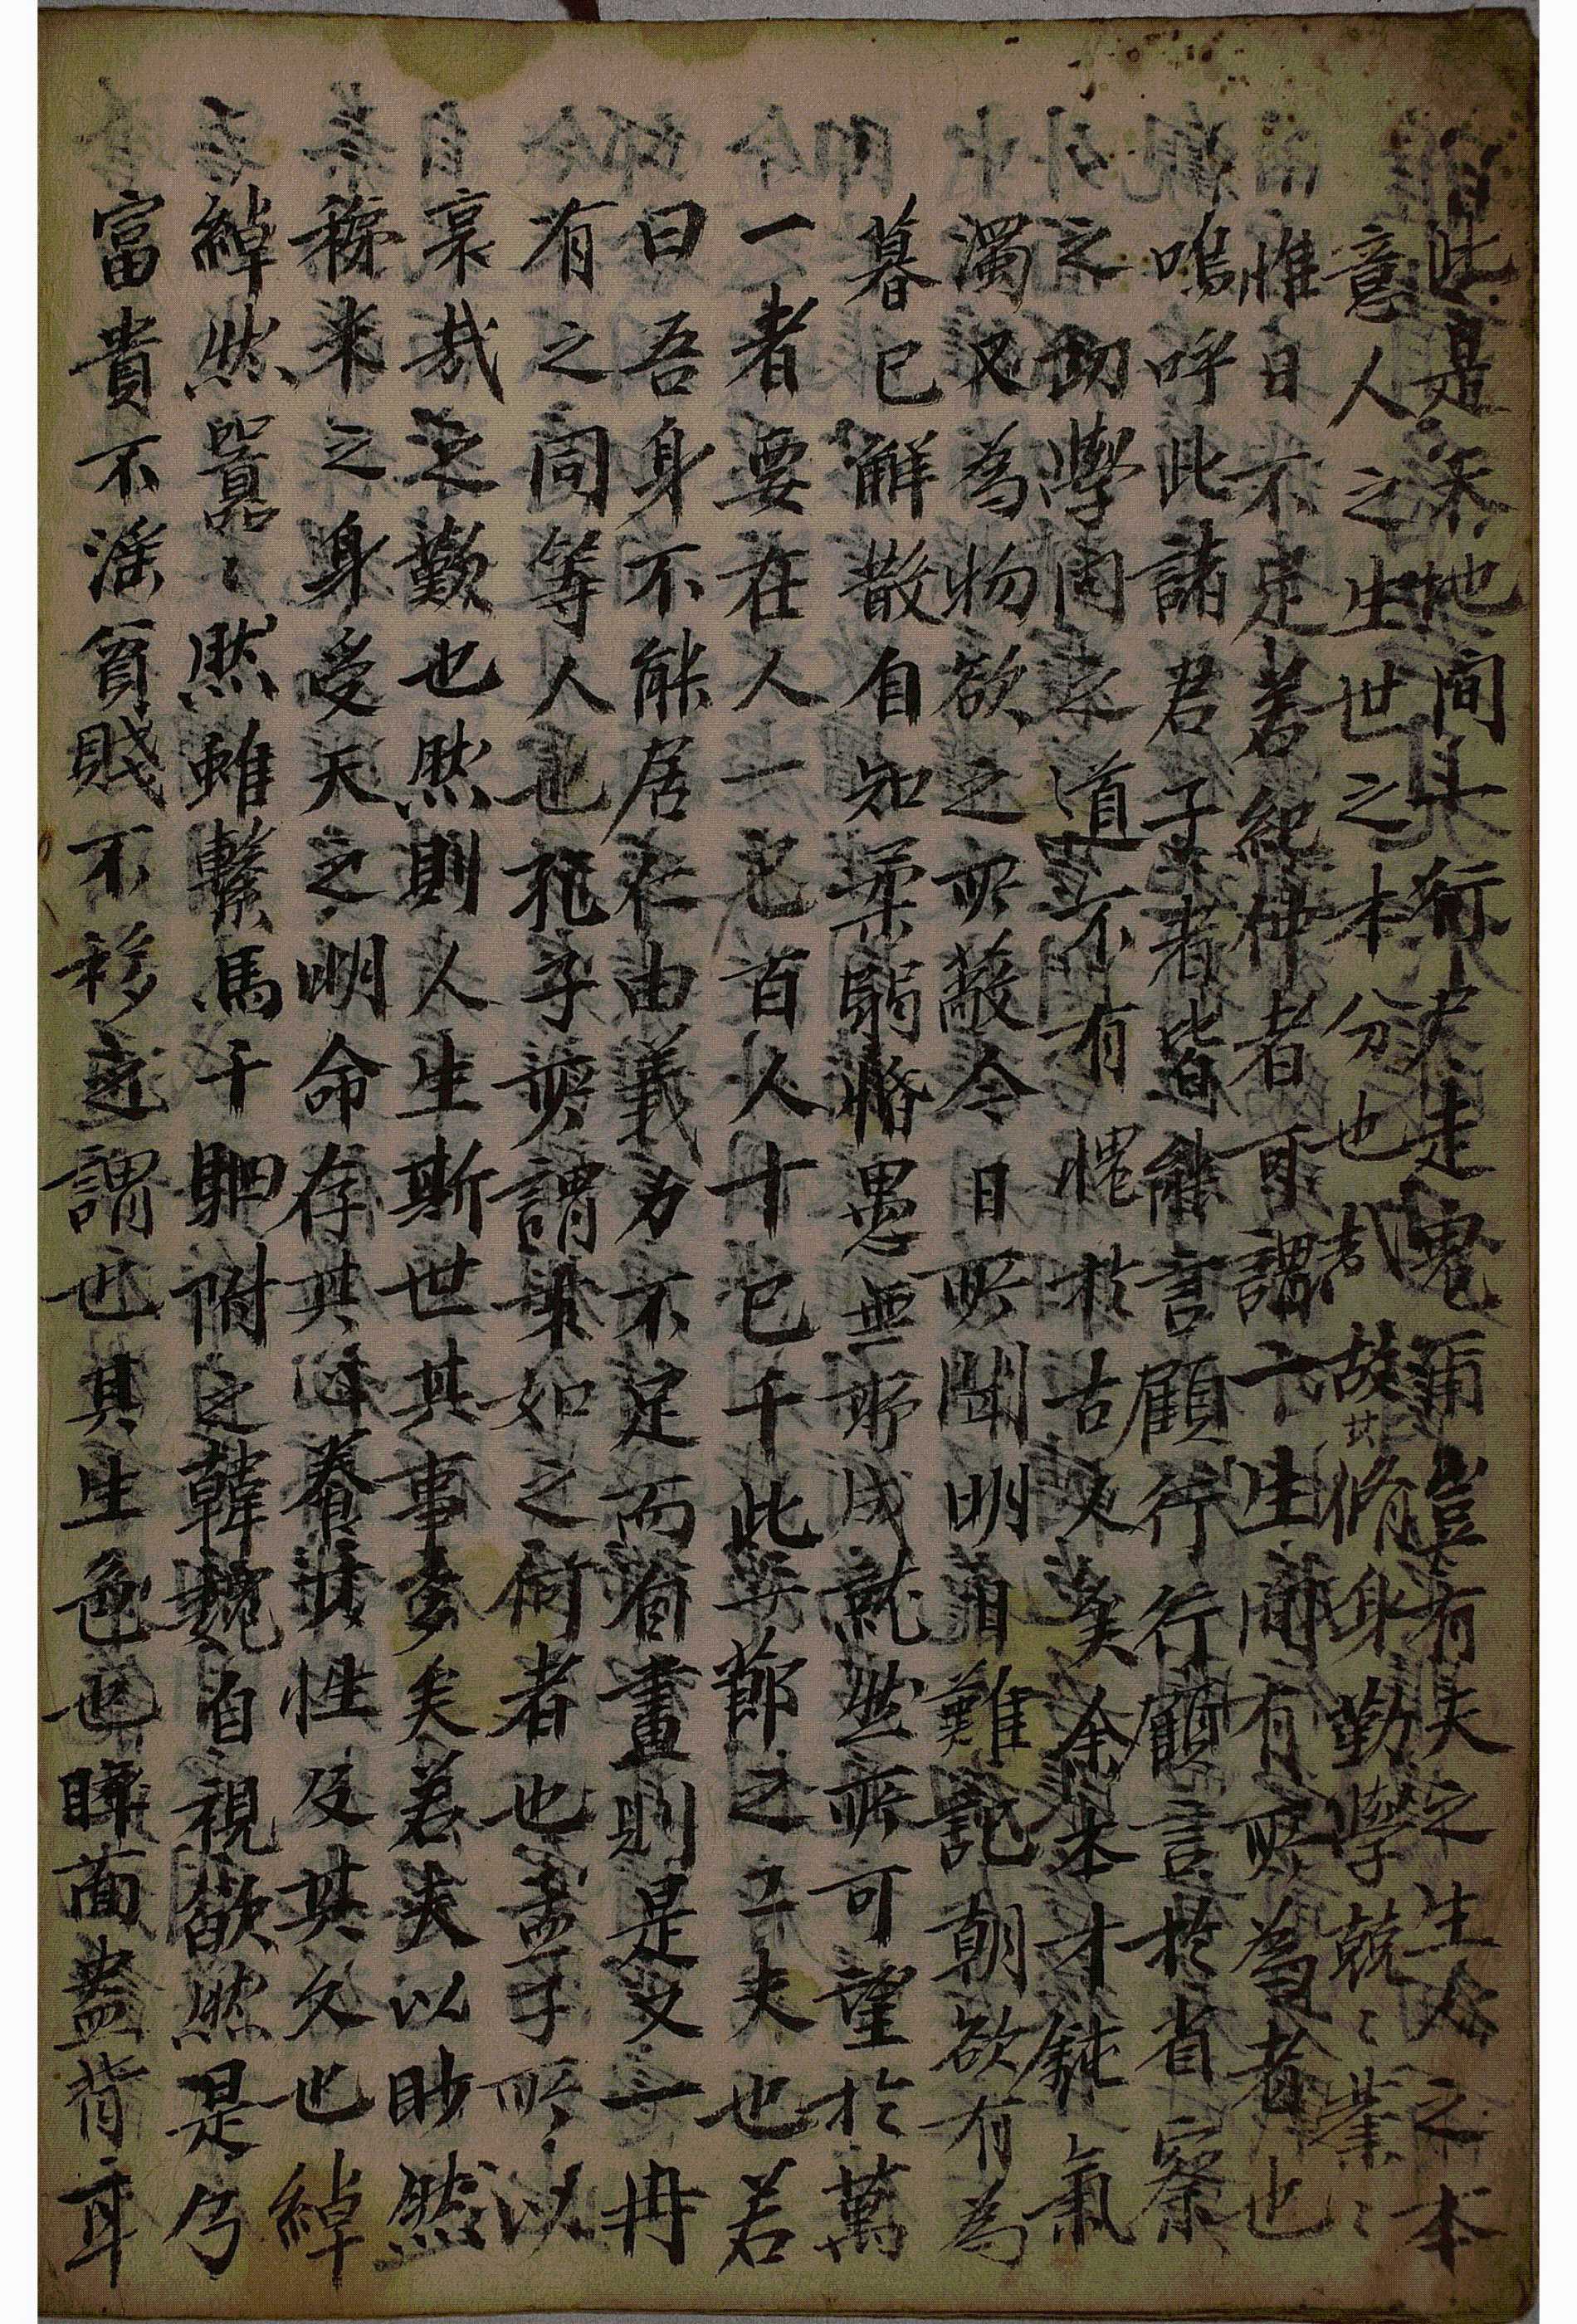 此是天地間長行尸走鬼而豈有夫之生人之本
意人之生世之本分也哉故其脩身勤學兢〻業〻
惟日不足若紀仲者可謂一生間有所爲者也
嗚呼此諸君子者皆能言顧行行顧言於省察
之切學問之道不有愧於古又矣余本才鈍氣
濁又為物欲之所蔽今日所聞明有難記朝欲有為
暮已解散自知柔弱惛愚無所成就然亦可望於萬
一者要在人一己百人十己千此要節之工夫也若
曰吾身不能居仁由義力不足而自畫則是又一冉
有之同等人也孔子所謂末如之何者也孟子所以
哀哉之歎也然則人生斯世其事多矣若夫以眇然
稊米之身受天之明命存其心養其性及其久也綽
綽然囂〻然雖繫馬千駟附之韓魏自視欿然是乃
富貴不淫貧賤不移之謂也其生色也睟面盎背耳